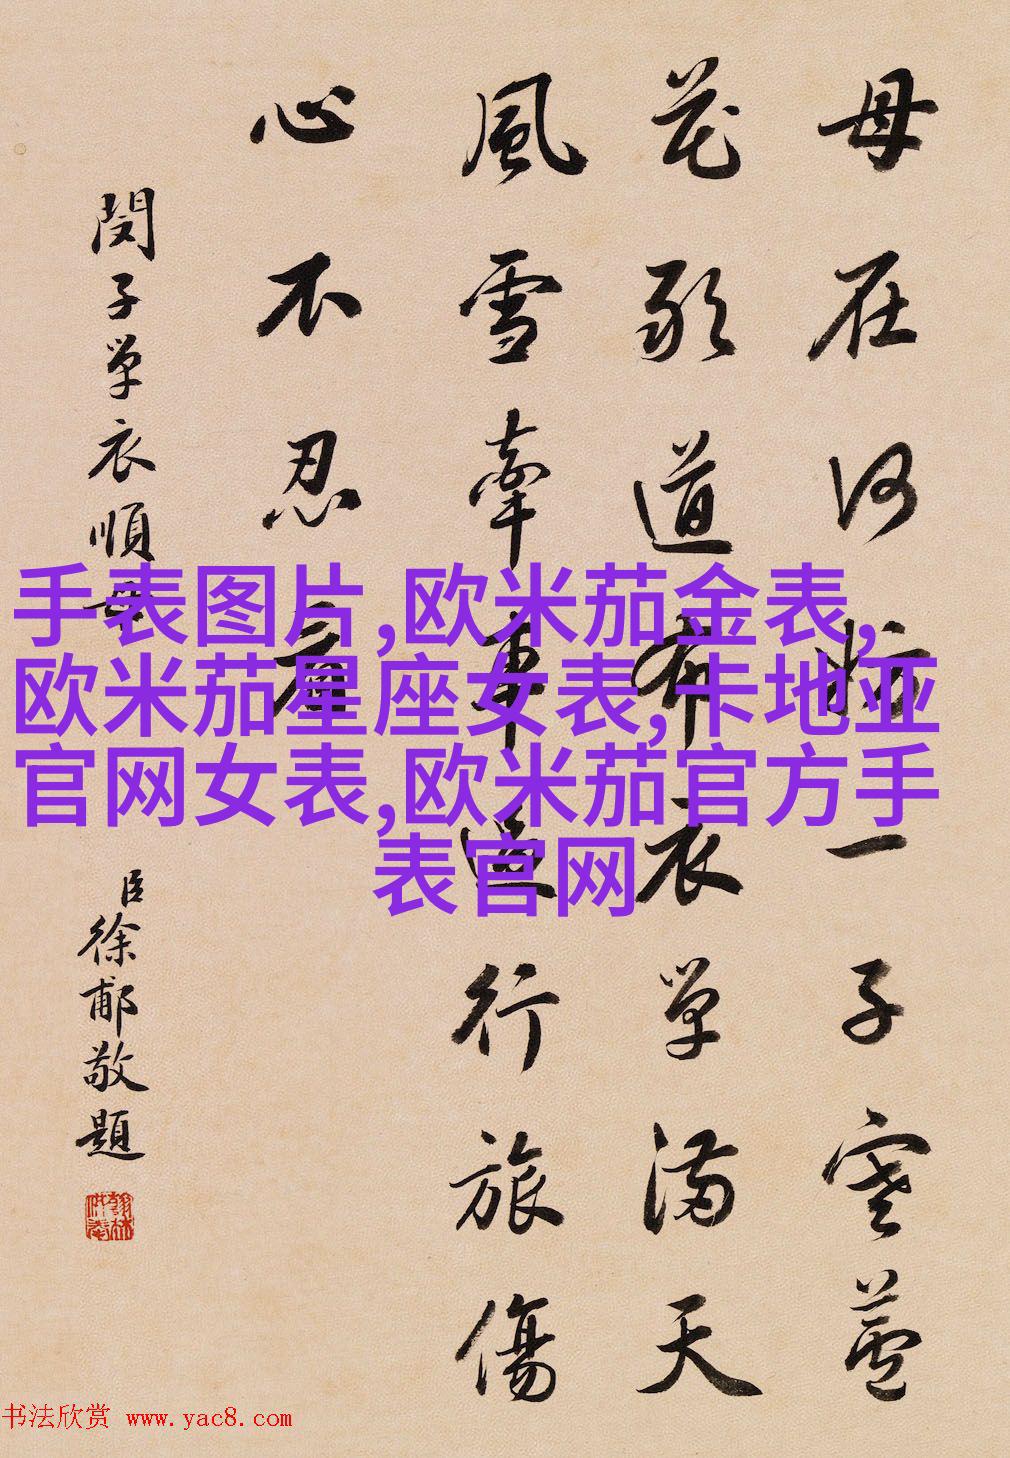 母在何妨一子寒蘆
花敢道布衣單滿天
風雪牽車過行旅傷
心不忍看
閔子單衣順母
臣徐郙敬題
手表图片,欧米茄金表,
欧米茄星座女表,卡地亚
官网女表,欧米茄官方手
表官网
书法欣赏 www.yac8.com